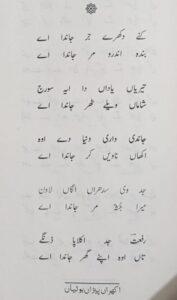 کنے دکھرے جر جاندا اے
بندہ اندرو مر جاندا اے
تیریاں یاداں دا ایہ سورج
شاماں ویلے ٹھر جاندا اے
چاندی واری دنیا دے اوہ
اکھاں نانویں کر جاندا اے
جد وی سدھراں اگاں لاون
میرا جاندا اے
رفعت جد اکلاپا ڈنگے
تاں اوہ اپنے گھر جاندا اے
اکھراں پرناں بولیاں